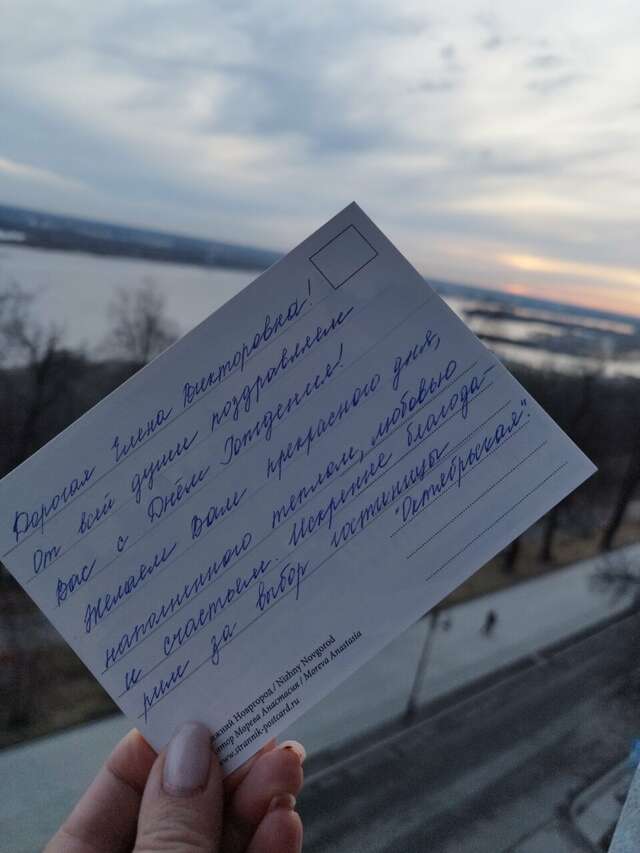 Дорогая Елена Викторовна!
От всей души поздравляем
Вас с Днём Рождения!
Желаем Вам прекрасного дня,
наполненного теплом, любовью
и счастьем. Искренне благода-
рим за выбор гостиницы
"Октябрьская".
Нижний Новгород / Nizhny Novgorod
Автор Морева Анастасия / Moreva Anastasia
www.strannik-postcard.ru